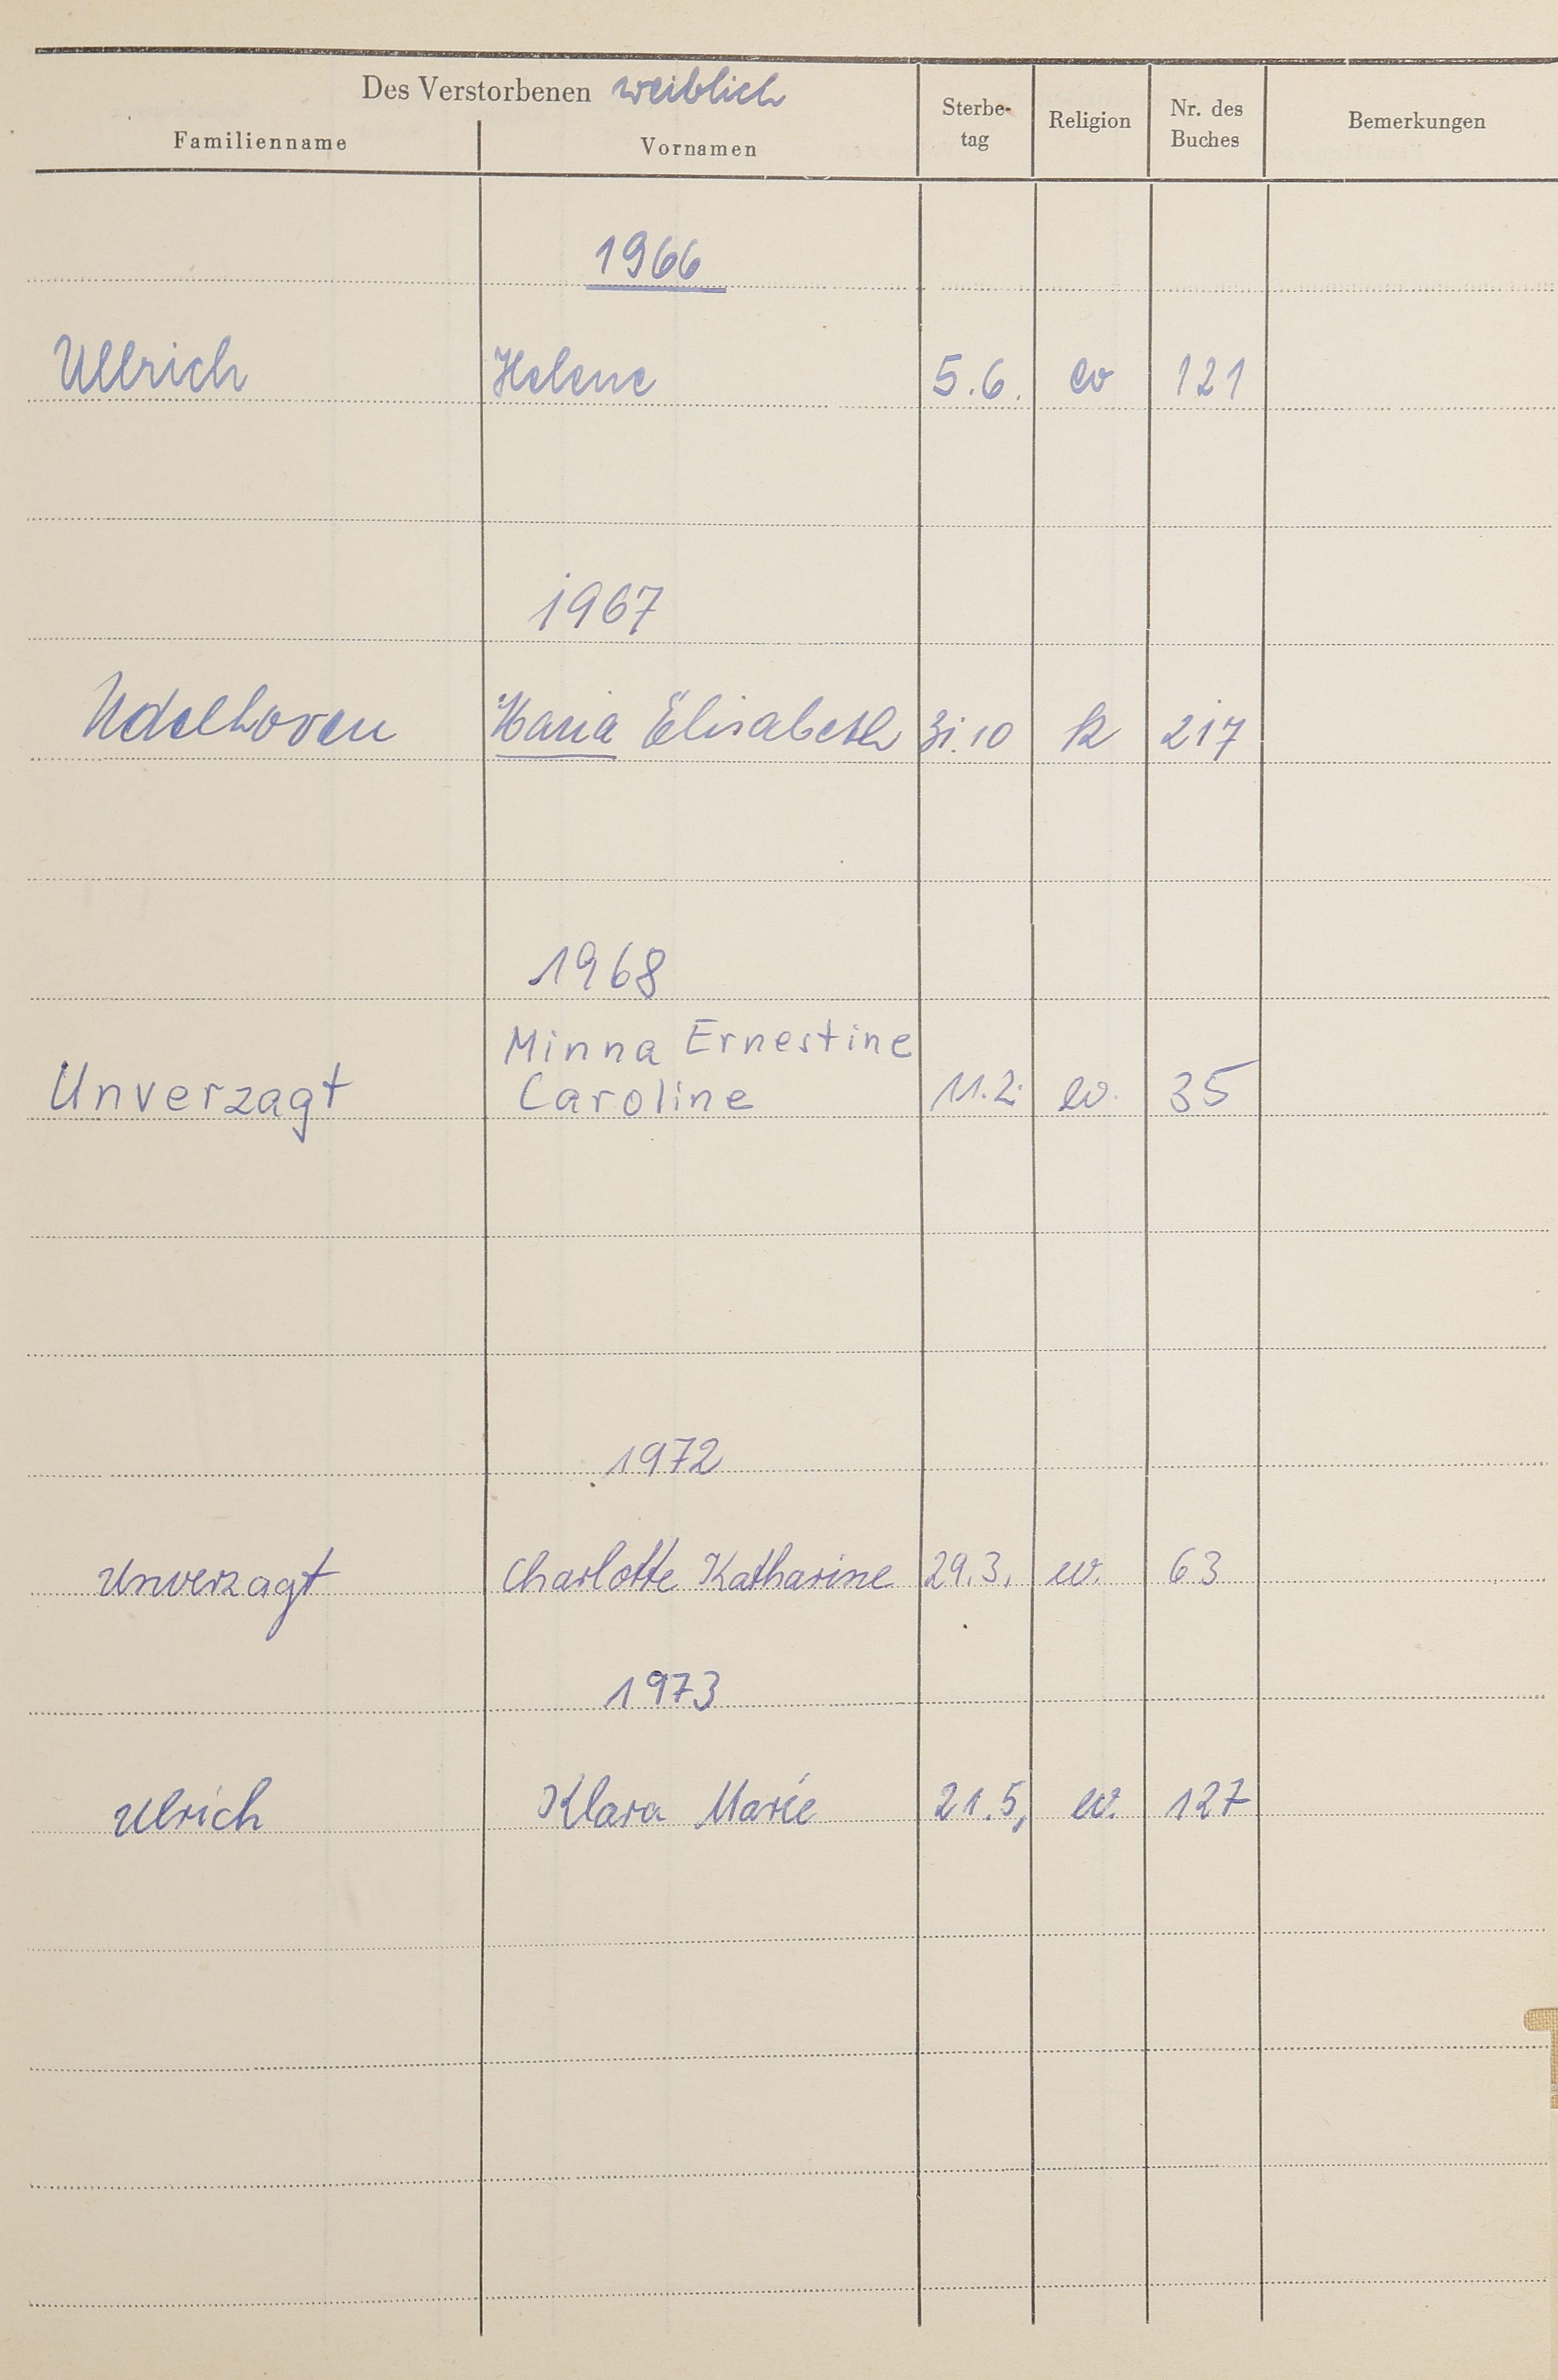 Des Verstorbenen weiblich
Familienname Vornamen Sterbe-tag Religion Nr. des Buches Bemerkungen
1966
Ullrich Helene 5.6. ev 121
1967
Udelhoven Maria Elisabeth 31.10 k 217
1968
Minna Ernestine
Unverzagt Caroline 11.2. ev. 35
1972
Unverzagt Charlotte Katharine 29.3. ev. 63
1973
Ulrich Klara Marie 21.5, ev. 127